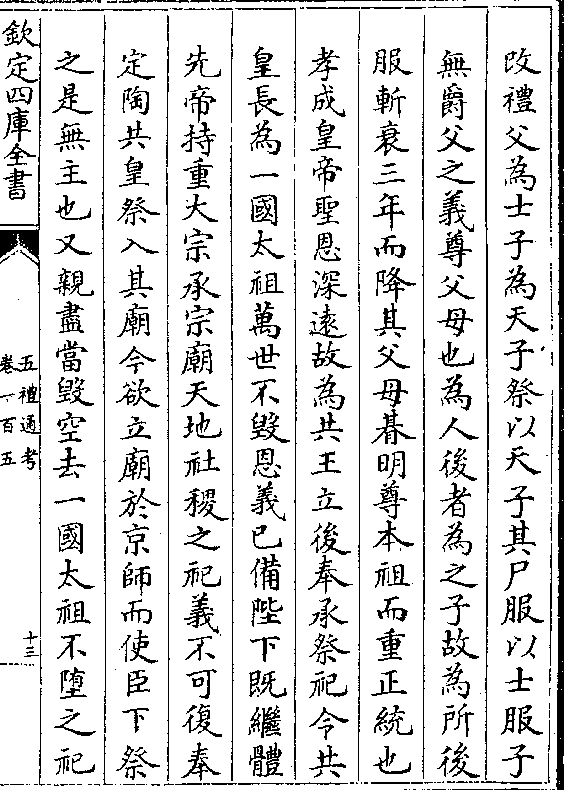 改禮父為士子為天子祭以天子其尸服以士服子
無爵父之義尊父母也為人後者為之子故為所後
服斬衰三年而降其父母朞明尊本祖而重正統也
孝成皇帝聖恩深遠故為共王立後奉承祭祀令共
皇長為一國太祖萬世不毀恩義已備陛下既繼體
先帝持重大宗承宗廟天地社稷之祀義不可復奉
定陶共皇祭入其廟今欲立廟於京師而使臣下祭
之是無主也又親盡當毀空去一國太祖不墮之祀
欽定四庫全書
五禮通考
卷一百五
十三